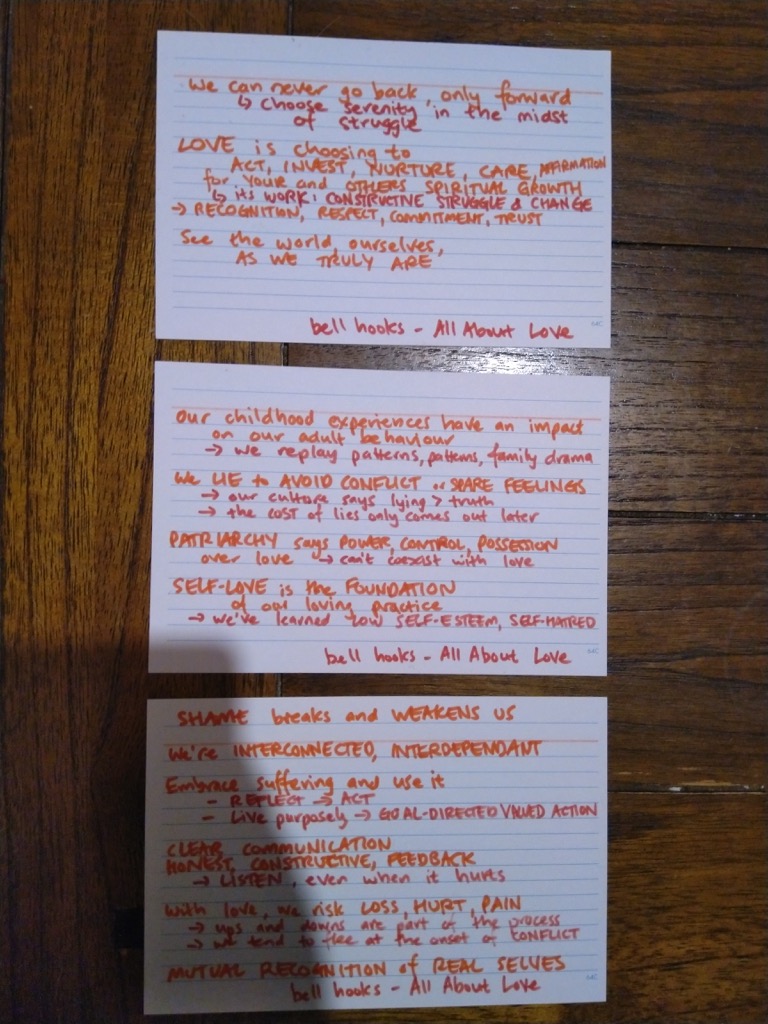 We can never go back, only forward
↳ Choose serenity in the midst
of struggle
LOVE is choosing to
ACT, INVEST, NURTURE, CARE, AFFIRMATION
for YOUR and OTHERS SPIRITUAL GROWTH
↳ ITS WORK: CONSTRUCTIVE STRUGGLE & CHANGE
→ RECOGNITION, RESPECT, COMMITMENT, TRUST
See the world, ourselves,
AS WE TRULY ARE
bell hooks - All About Love
Our childhood experiences have an impact
on our adult behaviour
→ we replay patterns, patterns, family drama
We LIE to AVOID CONFLICT or SPARE FEELINGS
→ our culture says lying > truth
→ the COST of lies only comes out later
PATRIARCHY says POWER, CONTROL, POSSESSION
over love → can't coexist with love
SELF-LOVE is the FOUNDATION
of our loving practice
→ We've learned low SELF-ESTEEM, SELF-HATRED
bell hooks - All About Love
SHAME breaks and WEAKENS US
We're INTERCONNECTED, INTERDEPENDANT
Embrace suffering and use it
- REFLECT → ACT
- Live purposely → GOAL-DIRECTED VALUED ACTION
CLEAR COMMUNICATION
HONEST, CONSTRUCTIVE, FEEDBACK
→ LISTEN, even when it hurts
With love, we risk LOSS, HURT, PAIN
→ ups and downs are part of the process
→ we tend to flee at the onset of CONFLICT
MUTUAL RECOGNITION of REAL SELVES
bell hooks - All About Love